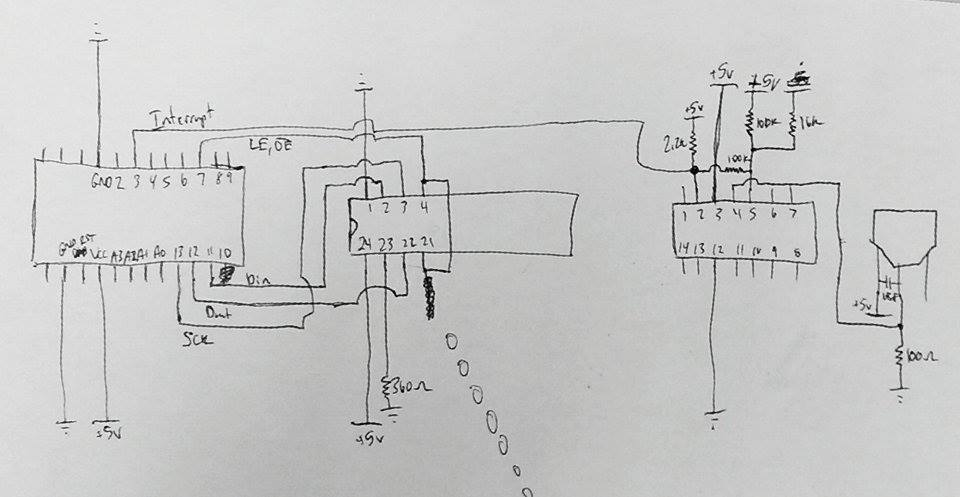 Interrupt
LE, OE
GND 2 3 4 5 6 7 8 9
GND RST VCC A3 A2 A1 A0 13 12 11 10
Din
Dout
SCK
+5V
1 2 3 4
24 23 22 21
360Ω
+5V
+5V
2.2k
+5V
+5V
100k
16k
100k
1 2 3 4 5 6 7
14 13 12 11 10 9 8
+5V
100Ω